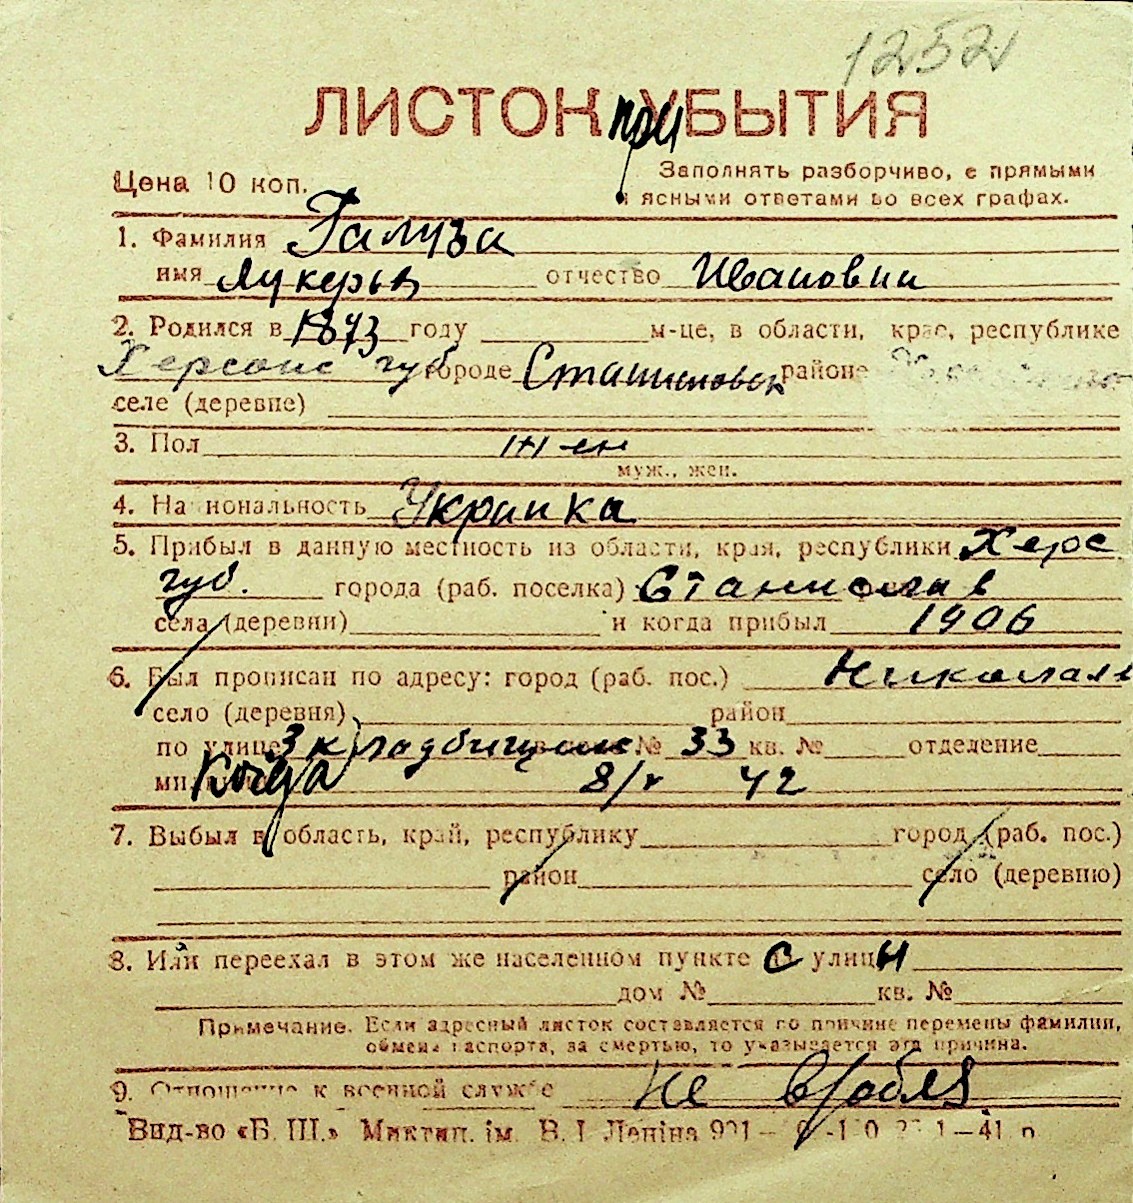 1252
ЛИСТОК при УБЫТИЯ
Цена 10 коп.
Заполнять разборчиво, с прямыми
и ясными ответами во всех графах.
1. Фамилия Галуза
имя Лукерья отчество Ивановни
2. Родился в 1873 году м-це, в области, крае, республике
Херсонс губ городе районе
селе (деревне)
3. Пол жен
муж., жен.
4. Национальность Украинка
5. Прибыл в данную местность из области, края, республики Херс
губ. города (раб. поселка) Станислав
села (деревни) и когда прибыл 1906
6. Был прописан по адресу: город (раб. пос.) Николаев
село (деревня) район
по улице 3 кладбищинс № 33 кв. № отделение
Когда 8/V 42
7. Выбыл в область, край, республику город (раб. пос.)
район село (деревню)
8. Или переехал в этом же населенном пункте с улицы
дом № кв. №
Примечание. Если адресный листок составляется по причине перемены фамилии,
обмена паспорта, за смертью, то указывается эта причина.
9. Отношение к военной службе не
Вид-во «Б. Ш.» Миктип. ім. В. І. Леніна